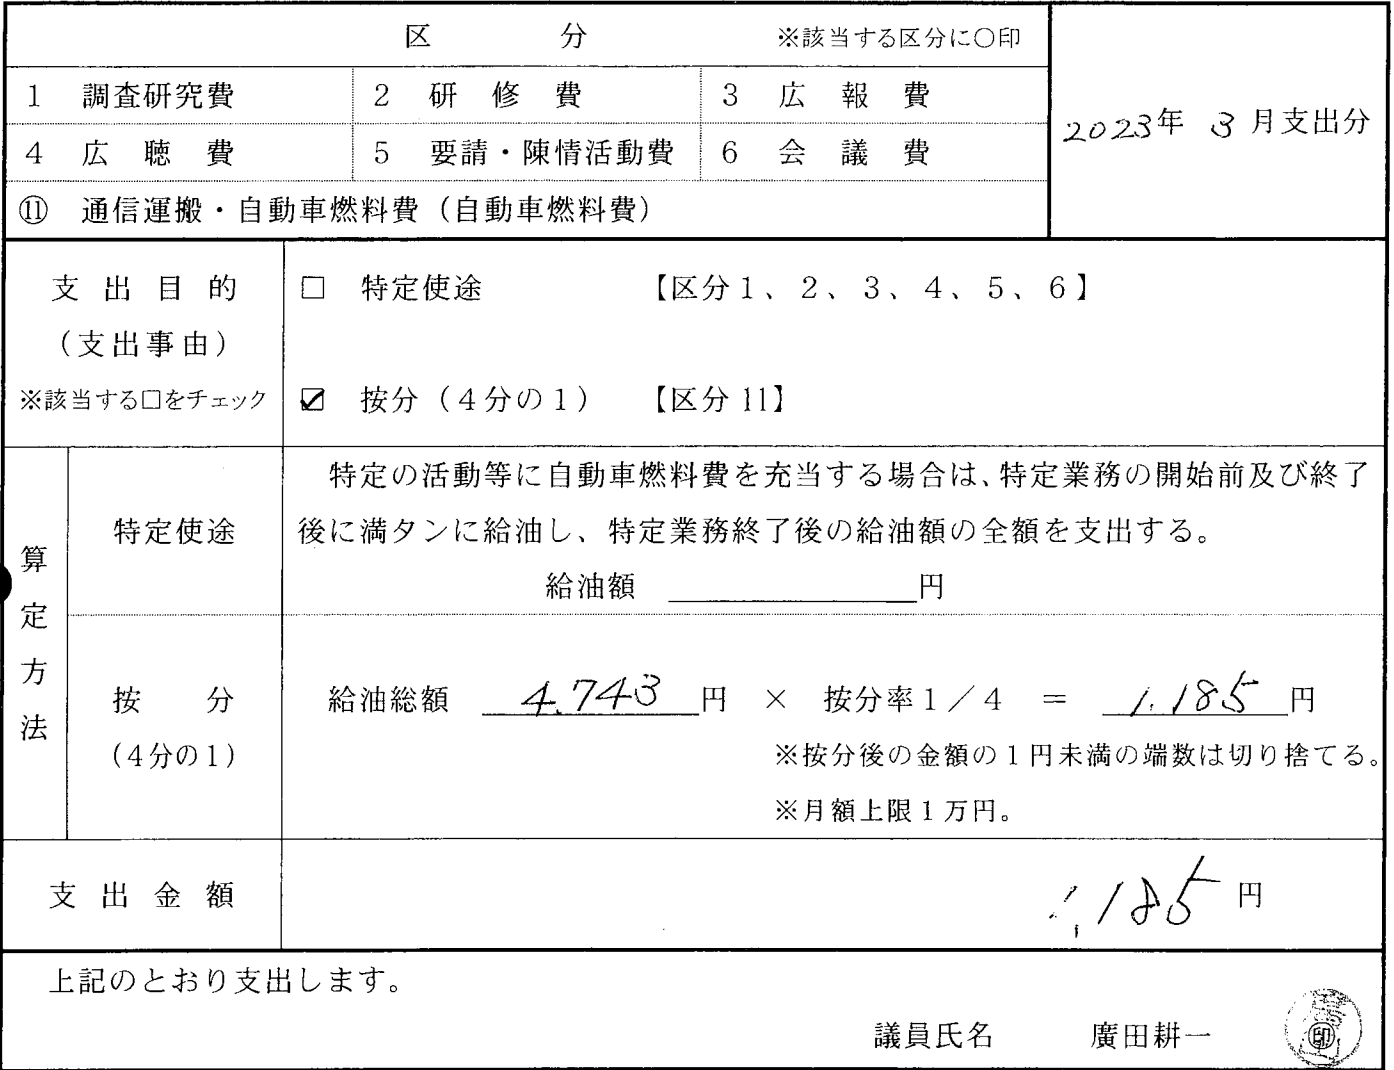 区　　　分　　　※該当する区分に〇印
2023年 3月支出分
1　調査研究費　2　研　修　費　3　広　報　費
4　広　聴　費　5　要請・陳情活動費　6　会　議　費
⑪　通信運搬・自動車燃料費（自動車燃料費）
支出目的
（支出事由）
※該当する□をチェック
□　特定使途　【区分1、2、3、4、5、6】
☑　按分（4分の1）　【区分11】
算定方法
特定使途
特定の活動等に自動車燃料費を充当する場合は、特定業務の開始前及び終了
後に満タンに給油し、特定業務終了後の給油額の全額を支出する。
給油額　　　　円
按　　分
（4分の1）
給油総額　4.743円　×　按分率1／4　＝　1.185円
※按分後の金額の1円未満の端数は切り捨てる。
※月額上限1万円。
支出金額　1,185円
上記のとおり支出します。
議員氏名　廣田耕一　㊞